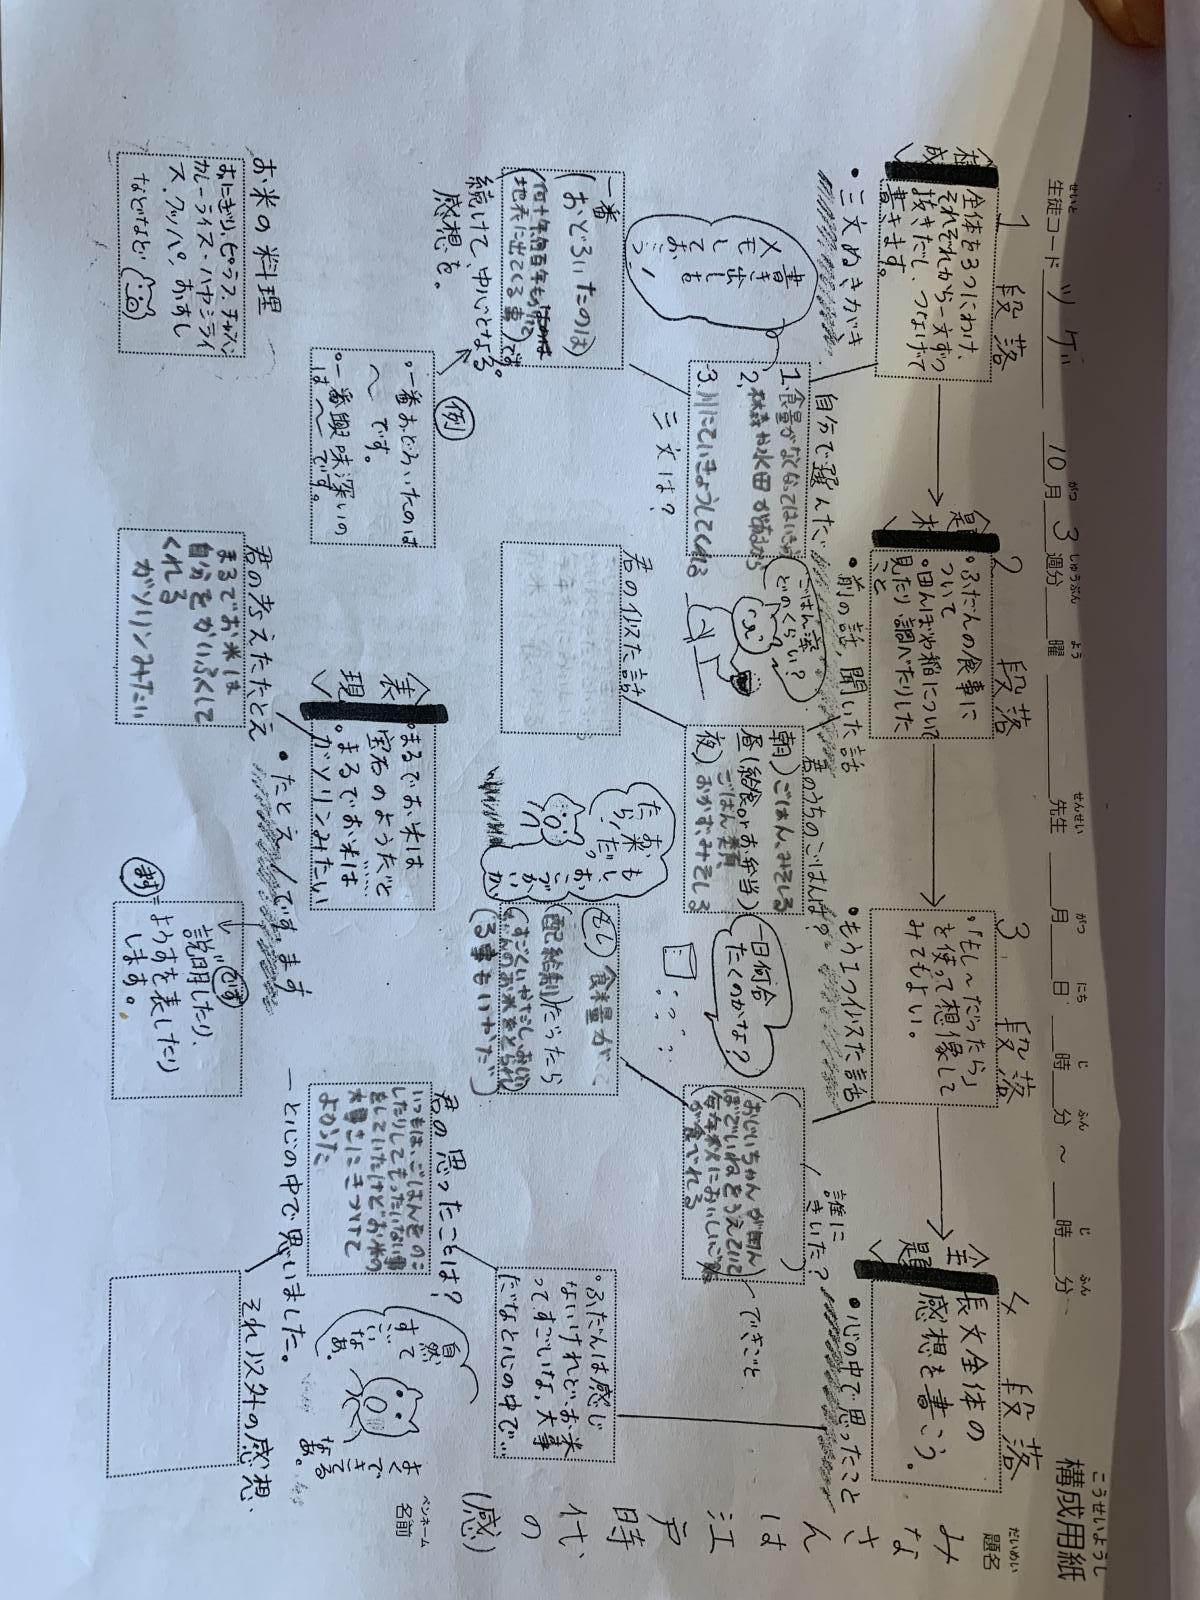 こうせいようし
構成用紙
せいと
生徒コード ツゲ
がつ しゅうぶん よう
10月3週分 曜
せんせい
先生
がつ にち じ ふん じ ふん
月 日 時 分 ~ 時 分
だいめい
題名
みなさんは江戸時代の(感)
ペンネーム
名前
1段落
構成
全体を3つにわけ、
それぞれから一文ずつ
抜きだし、つなげて
書きます。
・三文ぬきがき
書き出し
メモして
おこう!
自分で選んだ
三文は?
1.食量がなくなっては
2.
3.川にていきょうしてくれる
一番
(おどろいたのは)
地表に出てくる事)です
続けて、中心となる
感想を。
例
・一番おどろいたのは
~です。
・一番興味深いの
は~です。
お米の料理
おにぎり、ピラフ、チャーハン
カレーライス・ハヤシライ
ス、クッパ、おすし
などなど
2段落
題材
・ふだんの食事に
ついて
・田んぼや稲について
見たり、調べたりした
こと
・前の話、聞いた話
ごはん派?
どのくらい?
君のうちのごはんは?
朝)ごはん、みそしる
昼(給食orお弁当)
夜)
おかず、みそしる
君の似た話
お米
だったら
もし
表現
・まるでお米は
宝石のようだと
・まるでお米は
ガソリンみたい
・たとえ
君の考えたたとえ
まるでお米は
自分をかいふくして
くれる
ガソリンみたい
です。ます
ます=
です
説明したり、
ようすを表したり
します。
3段落
・「もし~だったら」
を使って想像して
みてもよい。
・もう1つ似た話
一日何合
たくのかな?
誰に
きいた?
できごと
おじいちゃんが田ん
ぼでいねをうえていて
毎年秋においしいご飯
が食べれる
もし
食料量が
配給制)だったら
4段落
主題
長文全体の
感想を書こう。
・心の中で思ったこと
・ふだんは感じ
ないけれど、お米
ってすごいな、大事
だなと心の中で…
君の思ったことは?
いつもは、ごはんをのこ
したりしてもったいない事
をしていたけどお米の
大事さにきづけて
よかった
―と心の中で思いました。
自然
すて
ごい
なあ。
よくできてるなあ。
それ以外の感想、